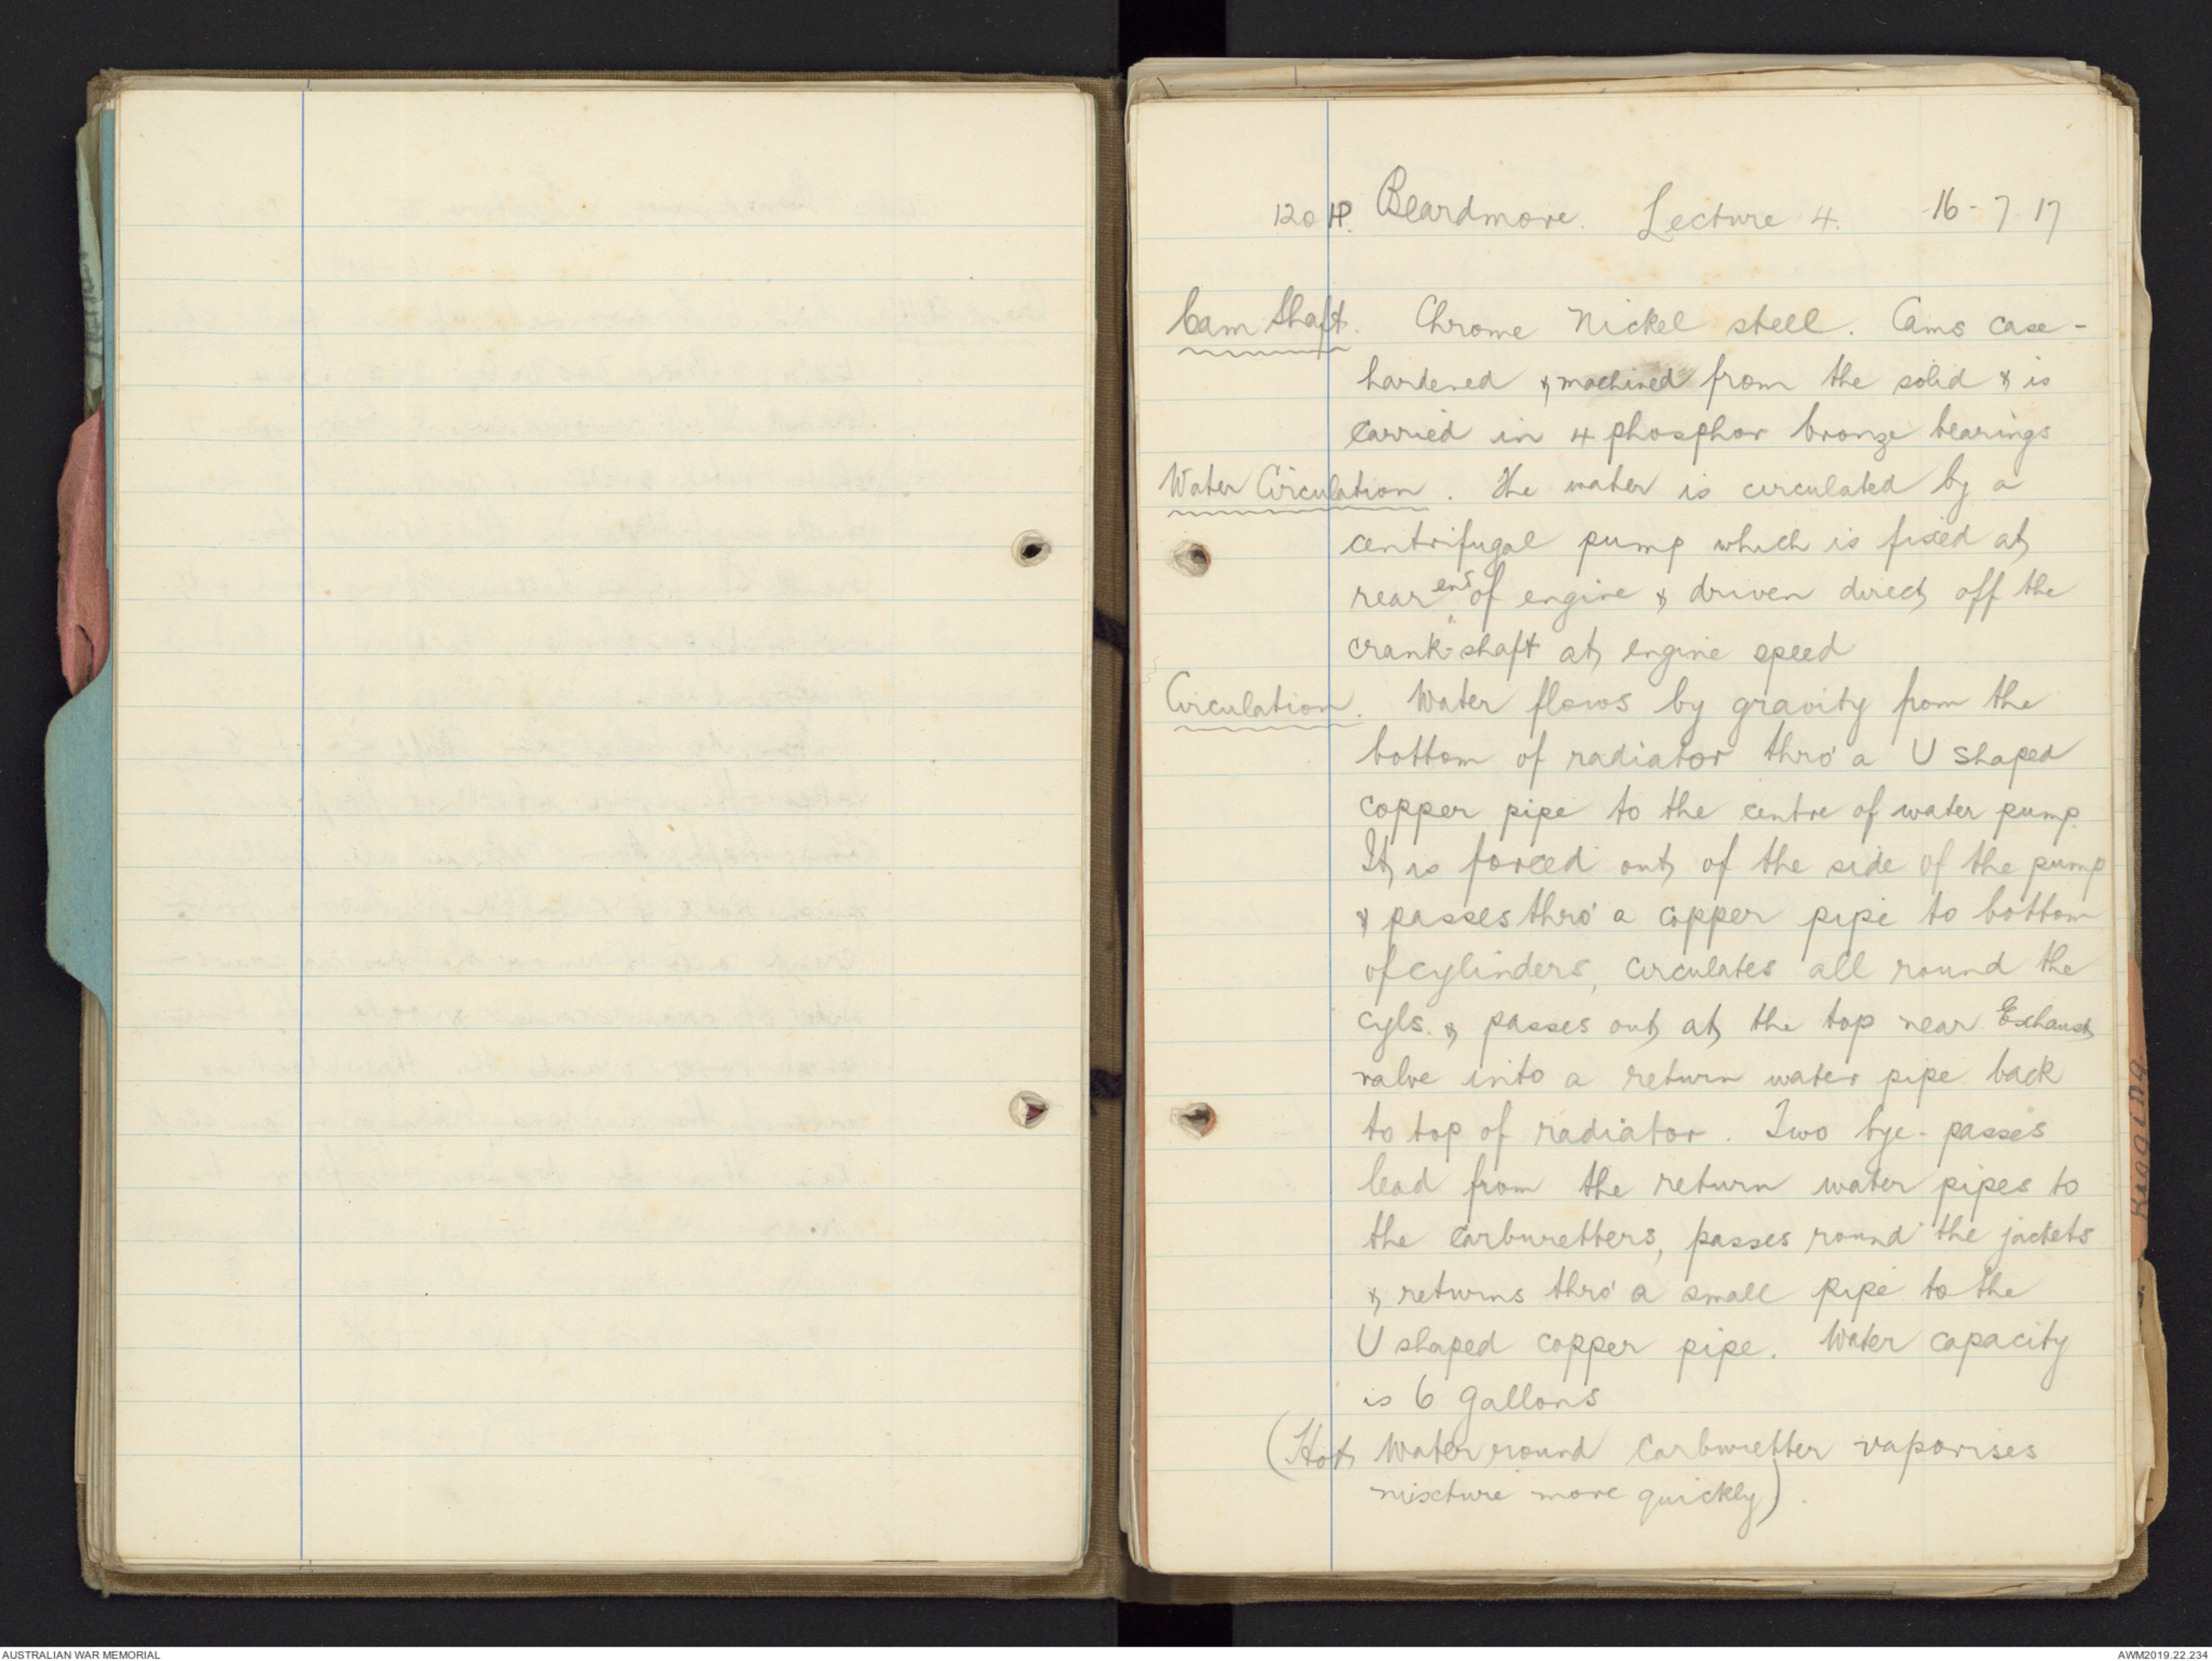 120 HP. Beardmore. Lecture 4. 16-7-17
Cam Shaft. Chrome Nickel steel. Cams case-
hardened & machined from the solid & is
carried in 4 phosphor bronze bearings
Water Circulation. The water is circulated by a
centrifugal pump which is fixed at
rear end of engine & driven direct off the
crank-shaft at engine speed
Circulation. Water flows by gravity from the
bottom of radiator thro' a U shaped
copper pipe to the centre of water pump.
It is forced out of the side of the pump
& passes thro' a copper pipe to bottom
of cylinders, circulates all round the
cyls. & passes out at the top near Exhaust
valve into a return water pipe back
to top of radiator. Two bye-passes
lead from the return water pipes to
the Carburetters, passes round the jackets
& returns thro' a small pipe to the
U shaped copper pipe. Water capacity
is 6 gallons
(Hot Water round Carburetter vaporises
mixture more quickly).
Rigging.
AUSTRALIAN WAR MEMORIAL
AWM2019.22.234